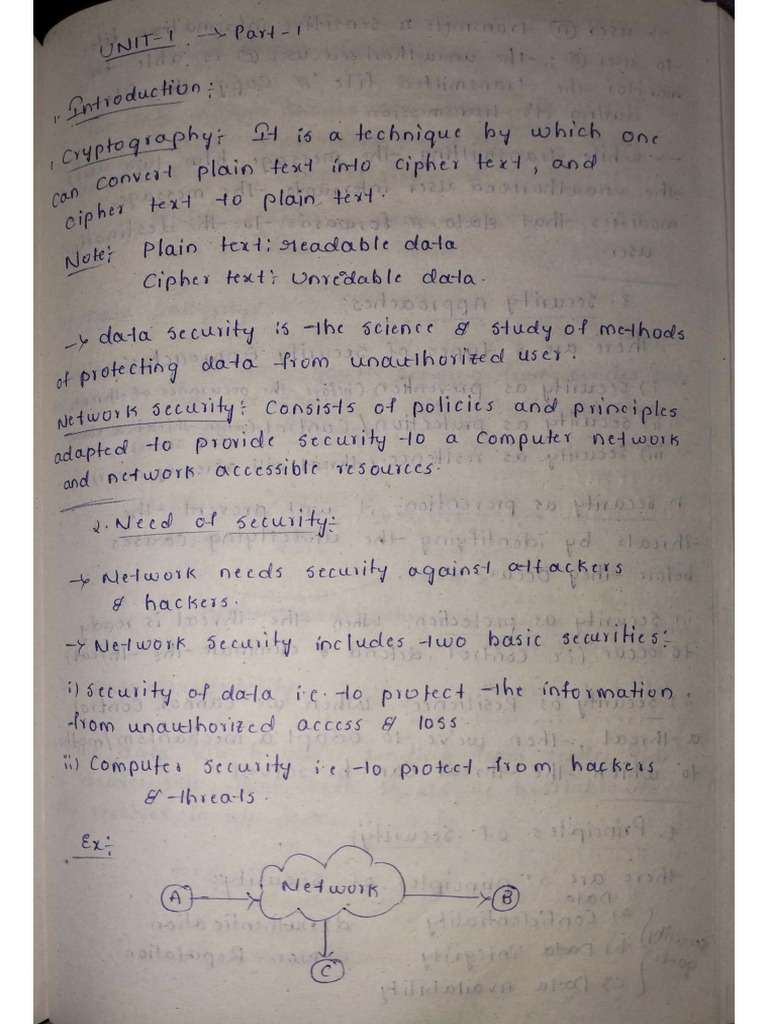 UNIT-1 → Part-1
1. Introduction:
1. Cryptography: It is a technique by which one
can convert plain text into cipher text, and
cipher text to plain text.
Note: Plain text: readable data
Cipher text: Unredable data.
→ data security is the science & study of methods
of protecting data from unauthorized user.
Network security: Consists of policies and principles
adapted to provide security to a computer network
and network accessible resources.
2. Need of security:
→ Network needs security against attackers
& hackers.
→ Network security includes two basic securities:
i) security of data i.e. to protect the information
from unauthorized access & loss.
ii) Computer security i.e. to protect from hackers
& threats.
Ex:
A Network B
C